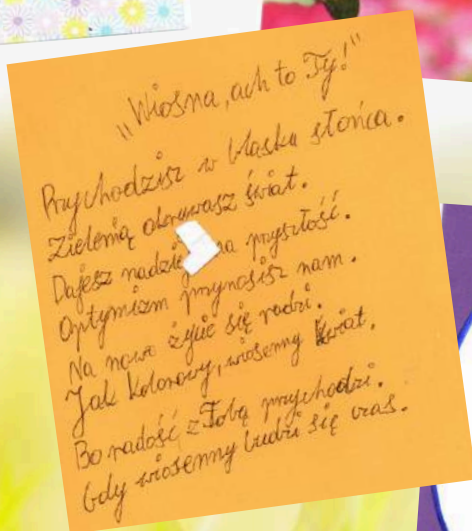 "Wiosna, ach to Ty!"
Przychodzisz w blasku słońca.
Zielenią okrywasz świat.
Dajesz nadzieję na przyszłość.
Optymizm przynosisz nam.
Na nowo życie się rodzi.
Jak kolorowy, wiosenny kwiat.
Bo radość z Tobą przychodzi.
Gdy wiosenny budzi się czas.